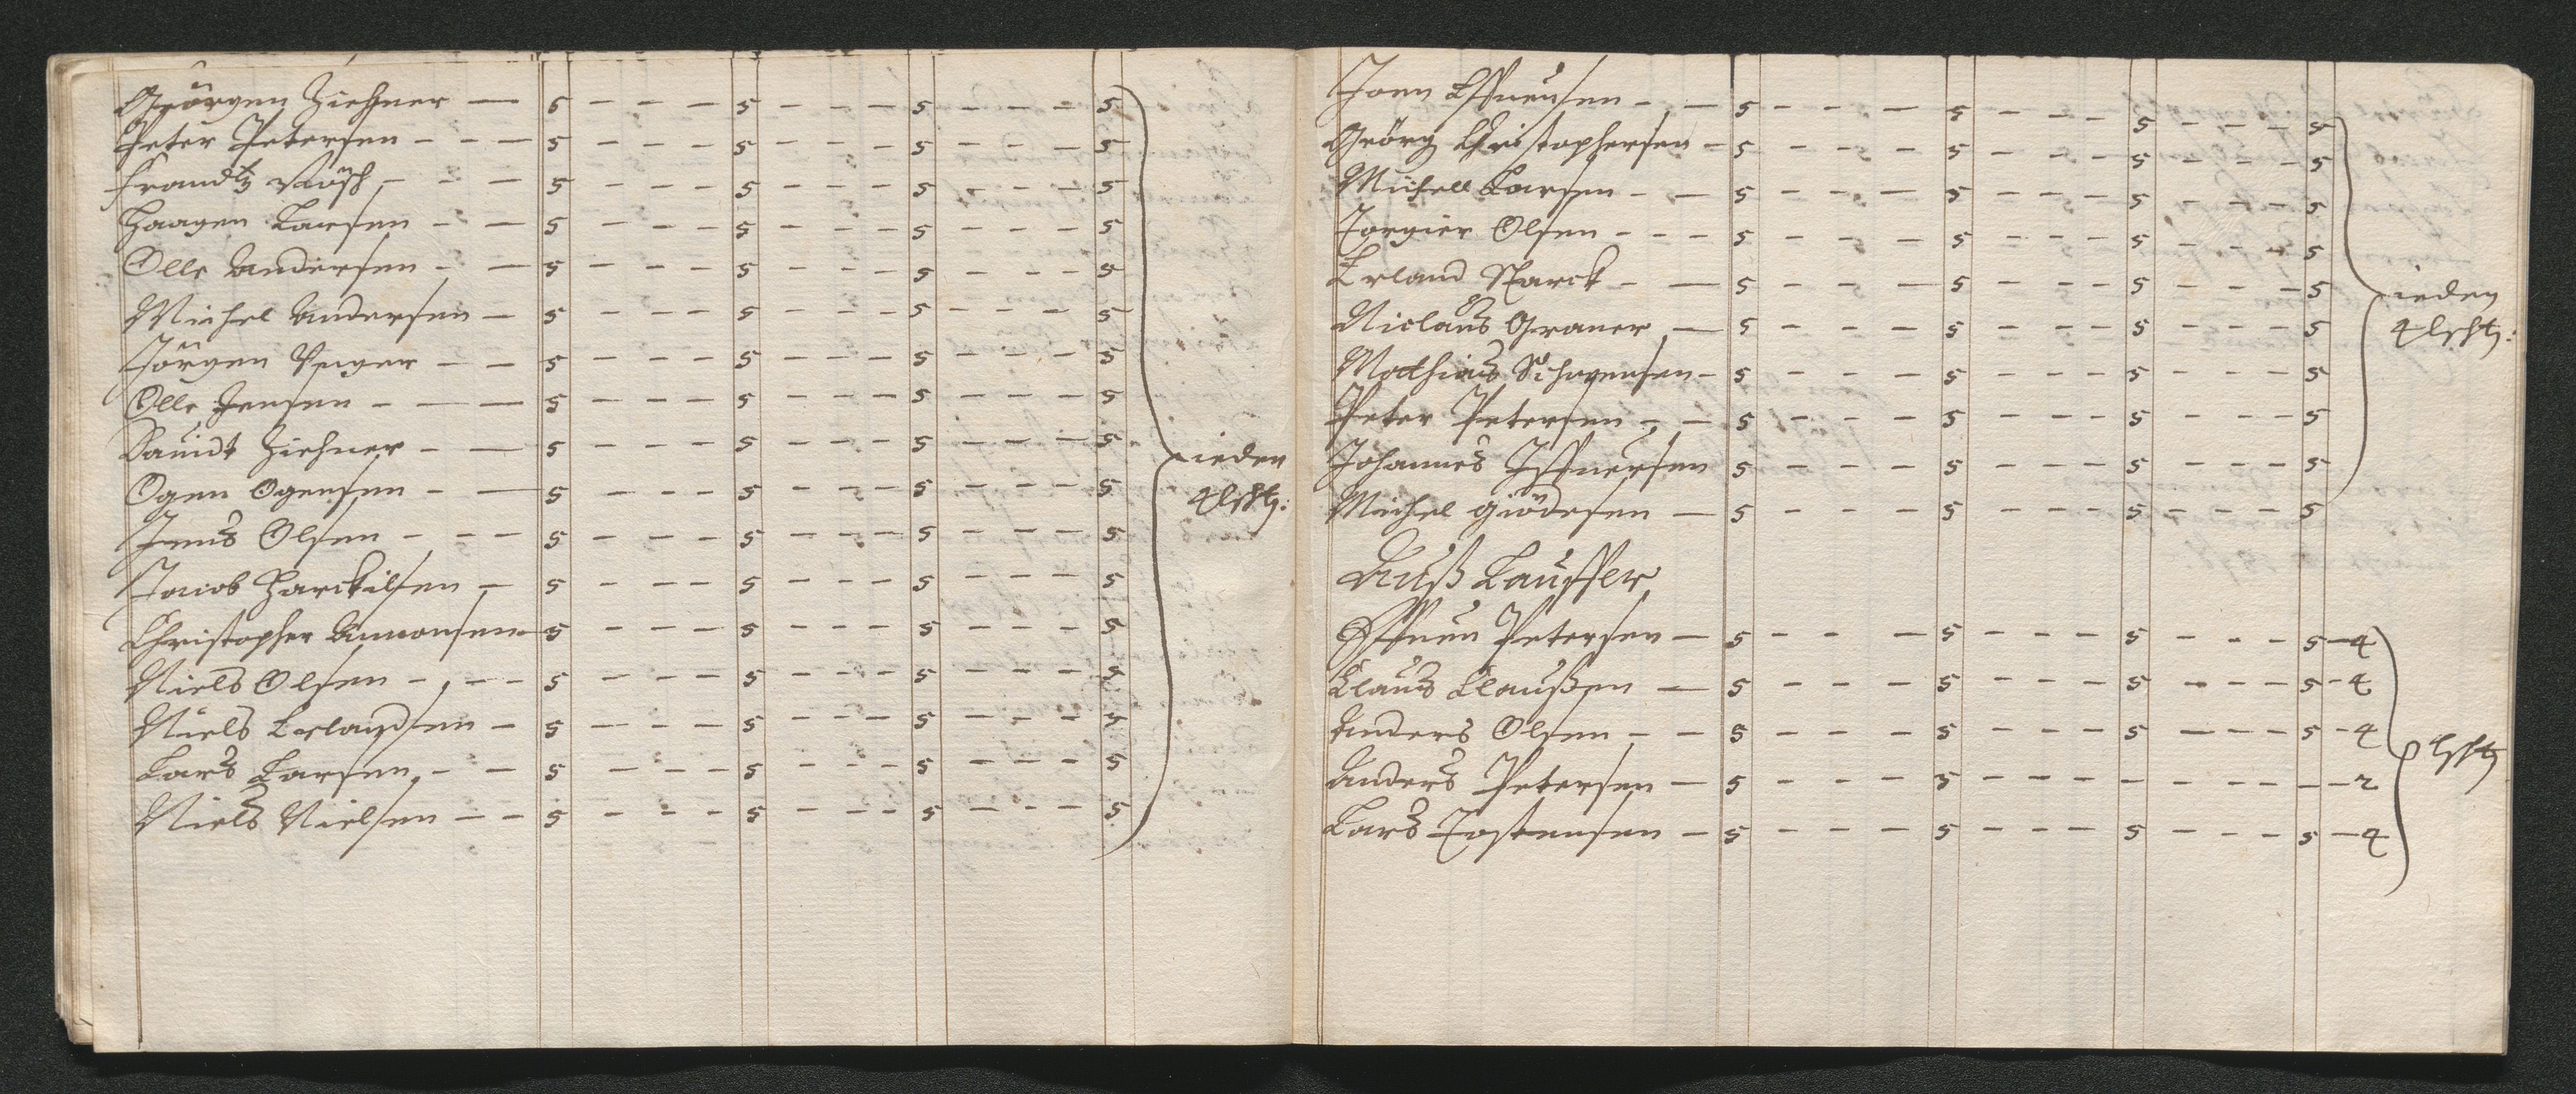 Geörgen Ziehner — 5 - - - - 5 - - - - 5 - - - - 5
Peter Petersen - - - 5 - - - - 5 - - - - 5 - - - - 5
Frandtz - - - 5 - - - - 5 - - - - 5 - - - - 5
Haagen Larsen - - 5 - - - - 5 - - - - 5 - - - - 5
Olle Andersen - - 5 - - - - 5 - - - - 5 - - - - 5
Michel Andersen - 5 - - - - 5 - - - - 5 - - - - 5
Jörgen Unger - - 5 - - - - 5 - - - - 5 - - - - 5
Olle Jensen - - - 5 - - - - 5 - - - - 5 - - - - 5
Dauidt Ziehner - - 5 - - - - 5 - - - - 5 - - - - 5
ieden
Ogen Ogensen - - 5 - - - - 5 - - - - 5 - - - - 5
4
Jens Olsen - - - 5 - - - - 5 - - - - 5 - - - - 5
Jacob Harckilsen - 5 - - - - 5 - - - - 5 - - - - 5
Christopher Amonsen 5 - - - - 5 - - - - 5 - - - - 5
Niels Olsen - - - 5 - - - - 5 - - - - 5 - - - - 5
Niels Erlandsen - 5 - - - - 5 - - - - 5 - - - - 5
Lars Larsen - - 5 - - - - 5 - - - - 5 - - - - 5
Niels Nielsen - - 5 - - - - 5 - - - - 5 - - - - 5
Joen - - 5 - - - - 5 - - - - 5 - - - - 5
Geörg Christophersen - 5 - - - - 5 - - - - 5 - - - - 5
Michell Larsen - - 5 - - - - 5 - - - - 5 - - - - 5
Torgier Olsen - - - 5 - - - - 5 - - - - 5 - - - - 5
Erland Starck - - 5 - - - - 5 - - - - 5 - - - - 5
ieden
Niclaus Graner - 5 - - - - 5 - - - - 5 - - - - 5
4
Matthias - 5 - - - - 5 - - - - 5 - - - - 5
Peter Petersen - - 5 - - - - 5 - - - - 5 - - - - 5
Johannes 5 - - - - 5 - - - - 5 - - - - 5
Michel Giödesen - 5 - - - - 5 - - - - 5 - - - - 5
Auß Lauffer
Petersen - 5 - - - - 5 - - - - 5 - - - - 5 - 4
Claus Claußen - 5 - - - - 5 - - - - 5 - - - - 5 - 4
Anders Olsen - - 5 - - - - 5 - - - - 5 - - - - 5 - 4
Anders Petersen - 5 - - - - 5 - - - - - - - - - 2
Lars Tostensen - 5 - - - - 5 - - - - 5 - - - - 5 - 4